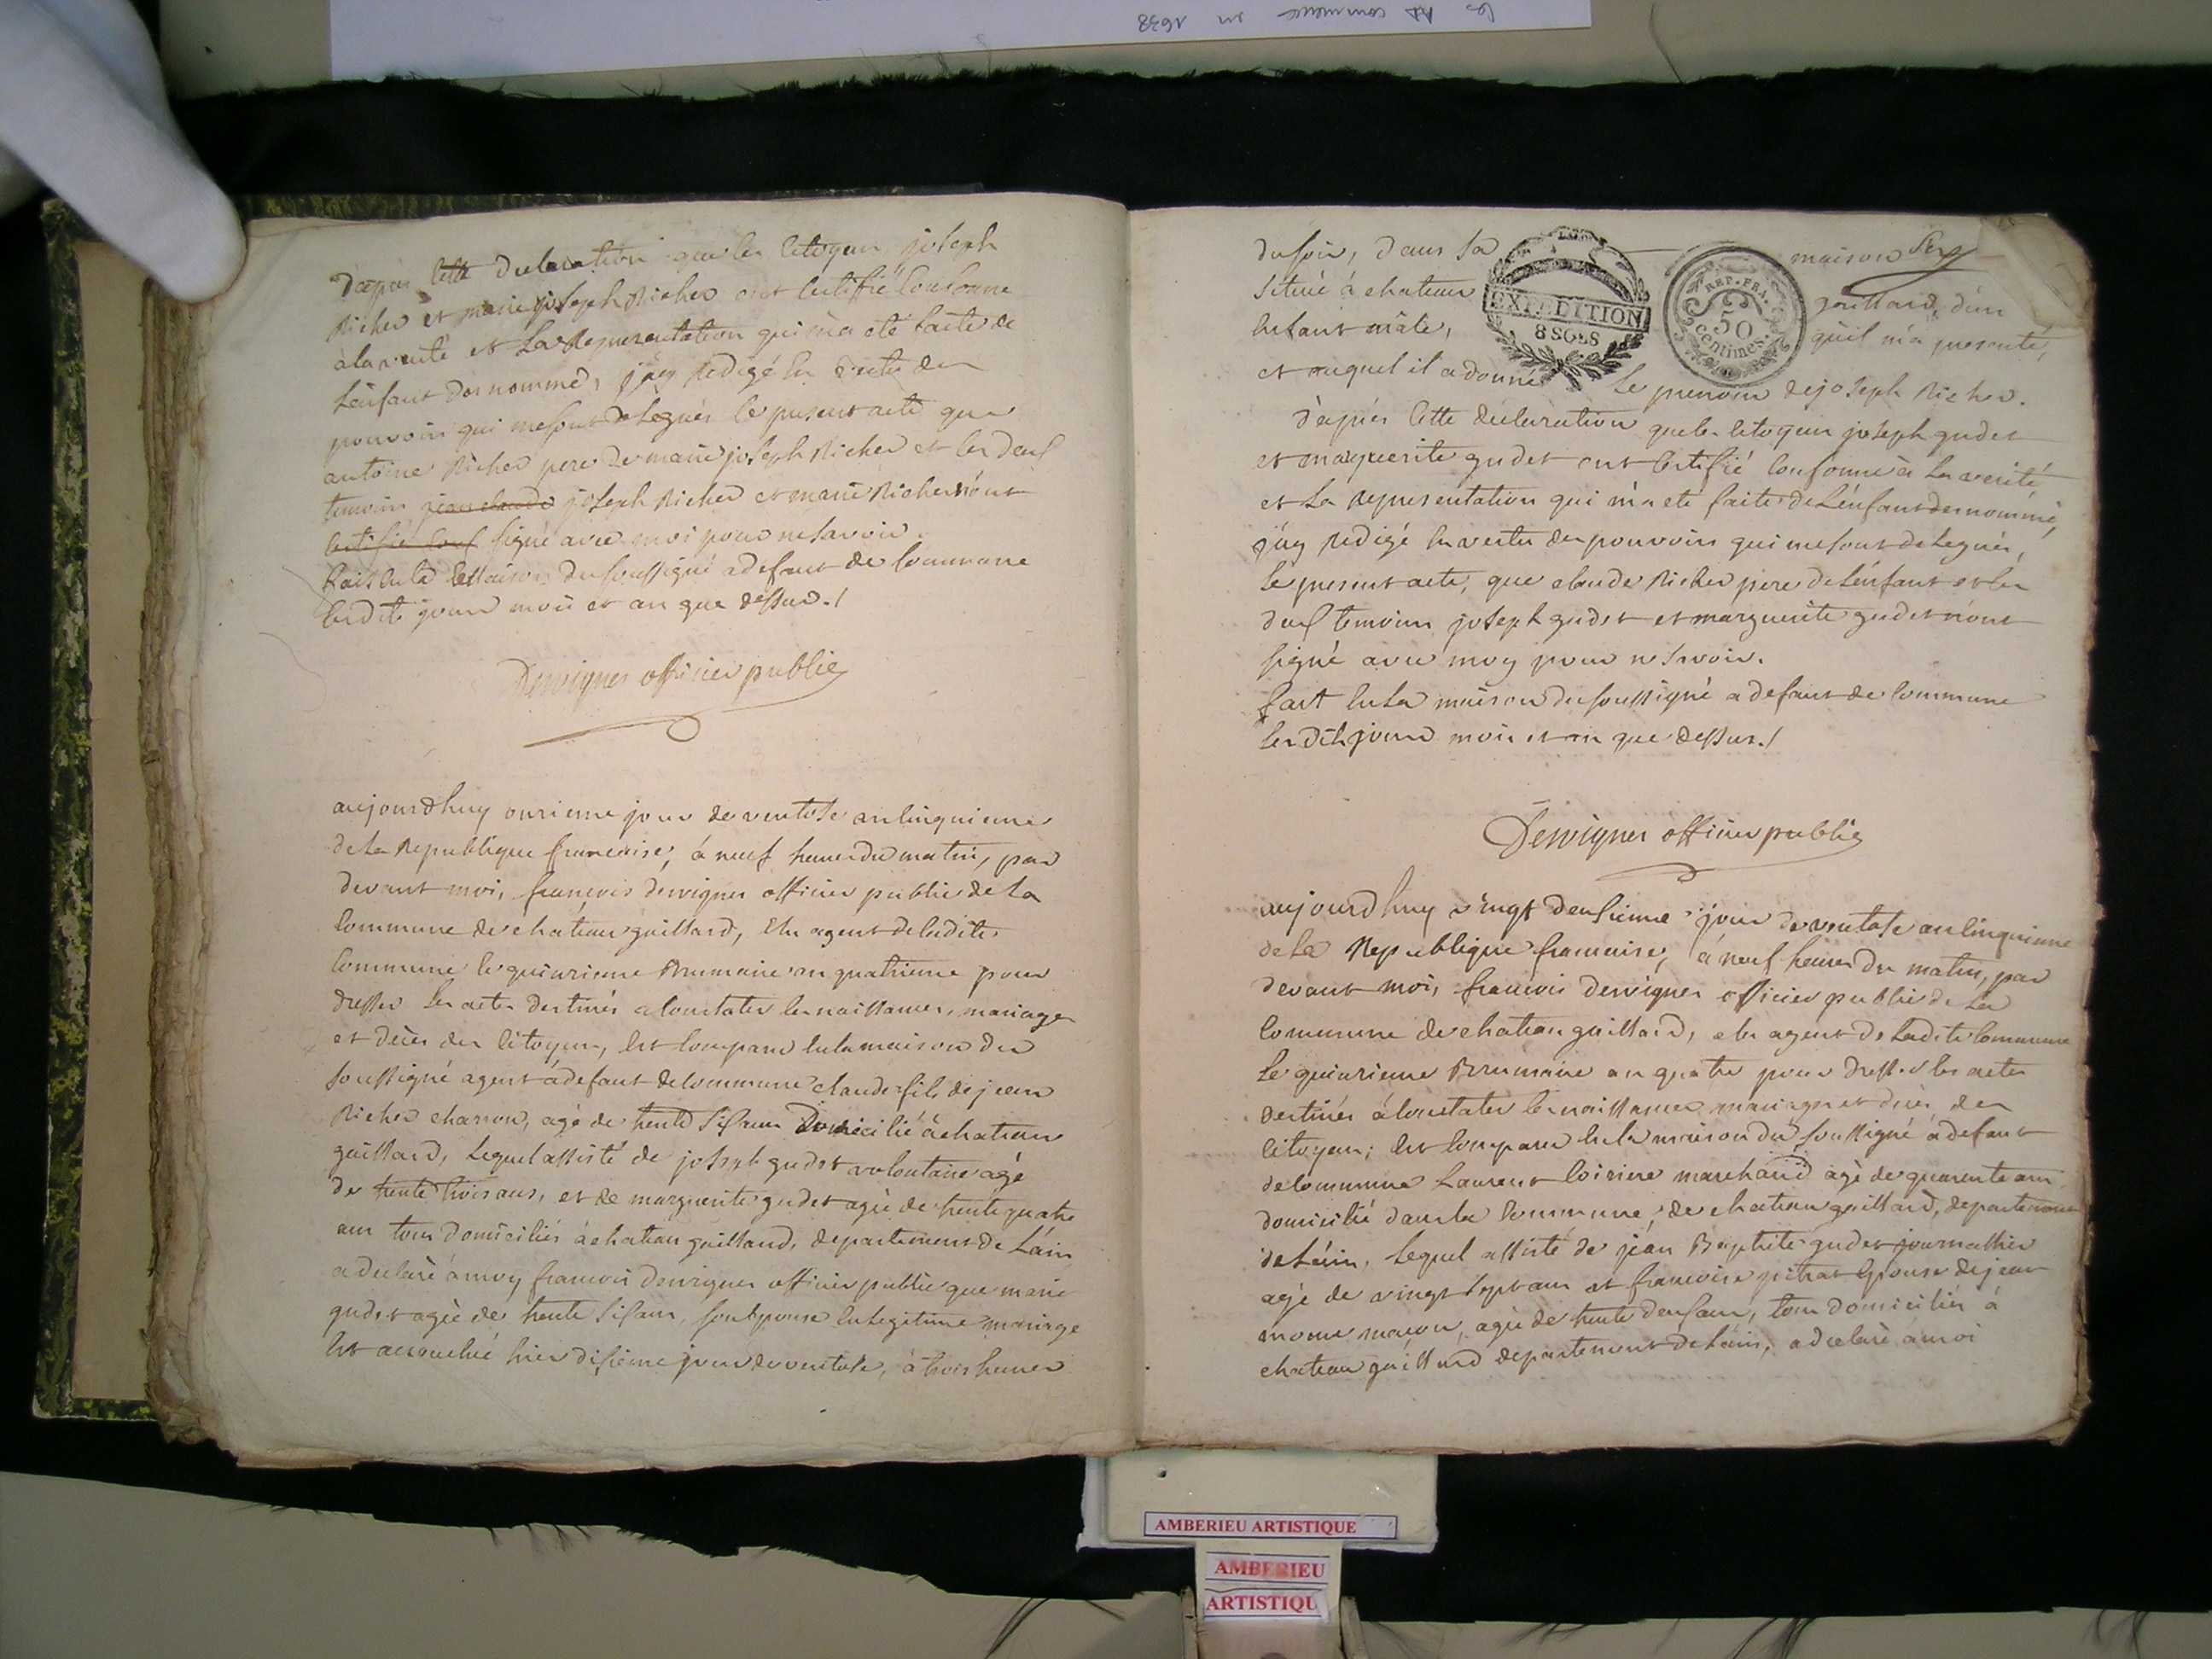 les commence en 1638
d'après cette declaration que les citoyens joseph
Richer et marie joseph Richer ont certifié conforme
a la verité et la Representation qui m'a eté faite de
L'enfant denommé, j'ay Redigé en vertu des
pouvoirs qui me sont delegués le present acte que
antoine Richer pere de marie joseph Richer et les deux
temoins jean claude joseph Richer et marie Richer n'ont
certifié conf signé avec moi pour ne savoir.
fait en la maison du soussigné a defaut de commune
lesdits jour mois et an que dessus./
Desvignes officier public
aujourdhuy onzieme jour de ventose an cinquieme
de la Republique francaise, á neuf heures du matin, par
devant moi, françois desvignes officier public de la
commune de chateau gaillard, elu agent de ladite
commune le quinzieme Brumaire an quatrieme pour
dresser les actes destinés a constater les naissances, mariages
et décès des citoyens, est comparu en la maison du
soussigné agent á defaut de commune claude fils de jean
Richer charron, agé de trente six ans Domicilié á chateau
gaillard, Lequel assisté de joseph gudet volontaire agé
de trente trois ans, et de marguerite gudet agée de trente quatre
ans tous domiciliés á chateau gaillard, departement de L'ain
a declaré a moy francois desvignes officier public que marie
gudet agée de trente six ans, son epouse en Legitime mariage
est accouchée hier dixieme jour de ventose, á trois heures
du soir, dans sa maison
située á chateau gaillard, d'un
enfant mâle, qu'il m'a presenté,
et auquel il a donné Le prenom de joseph Richer.
EXPEDITION
8 SOLS
REP. FRA.
50
centimes.
d'après cette declaration que les citoyens joseph gudet
et marguerite gudet ont certifié conforme à la verité
et la representation qui m'a eté faite de L'enfant denommé,
j'ay redigé en vertu des pouvoirs qui me sont delegués,
le present acte, que claude Richer pere de L'enfant et les
deux temoins joseph gudet et marguerite gudet n'ont
signé avec moy pour ne savoir.
fait en la maison du soussigné a defaut de commune
les dits jour mois et an que dessus./
Desvignes officier public
aujourdhuy vingt deuxieme jour de ventose an cinquieme
de la Republique francaise, á neuf heures du matin, par
devant moi, francois desvignes officier public de la
commune de chateau gaillard, elu agent de Ladite commune
le quinzieme Brumaire an quatre pour dresser les actes
destinés á constater les naissances mariages et décès des
citoyens; est comparu en la maison du soussigné á defaut
de commune Laurent marchand agé de quarente ans
domicilié dans la commune de chateau gaillard, departement
de L'ain, Lequel assisté de jean Baptiste gudet journallier
agé de vingt sept ans et francoise epouse de jean
macon, agée de trente deux ans, tous domiciliés á
chateau gaillard departement de L'ain, a declaré a moi
AMBERIEU ARTISTIQUE
AMBERIEU
ARTISTIQU